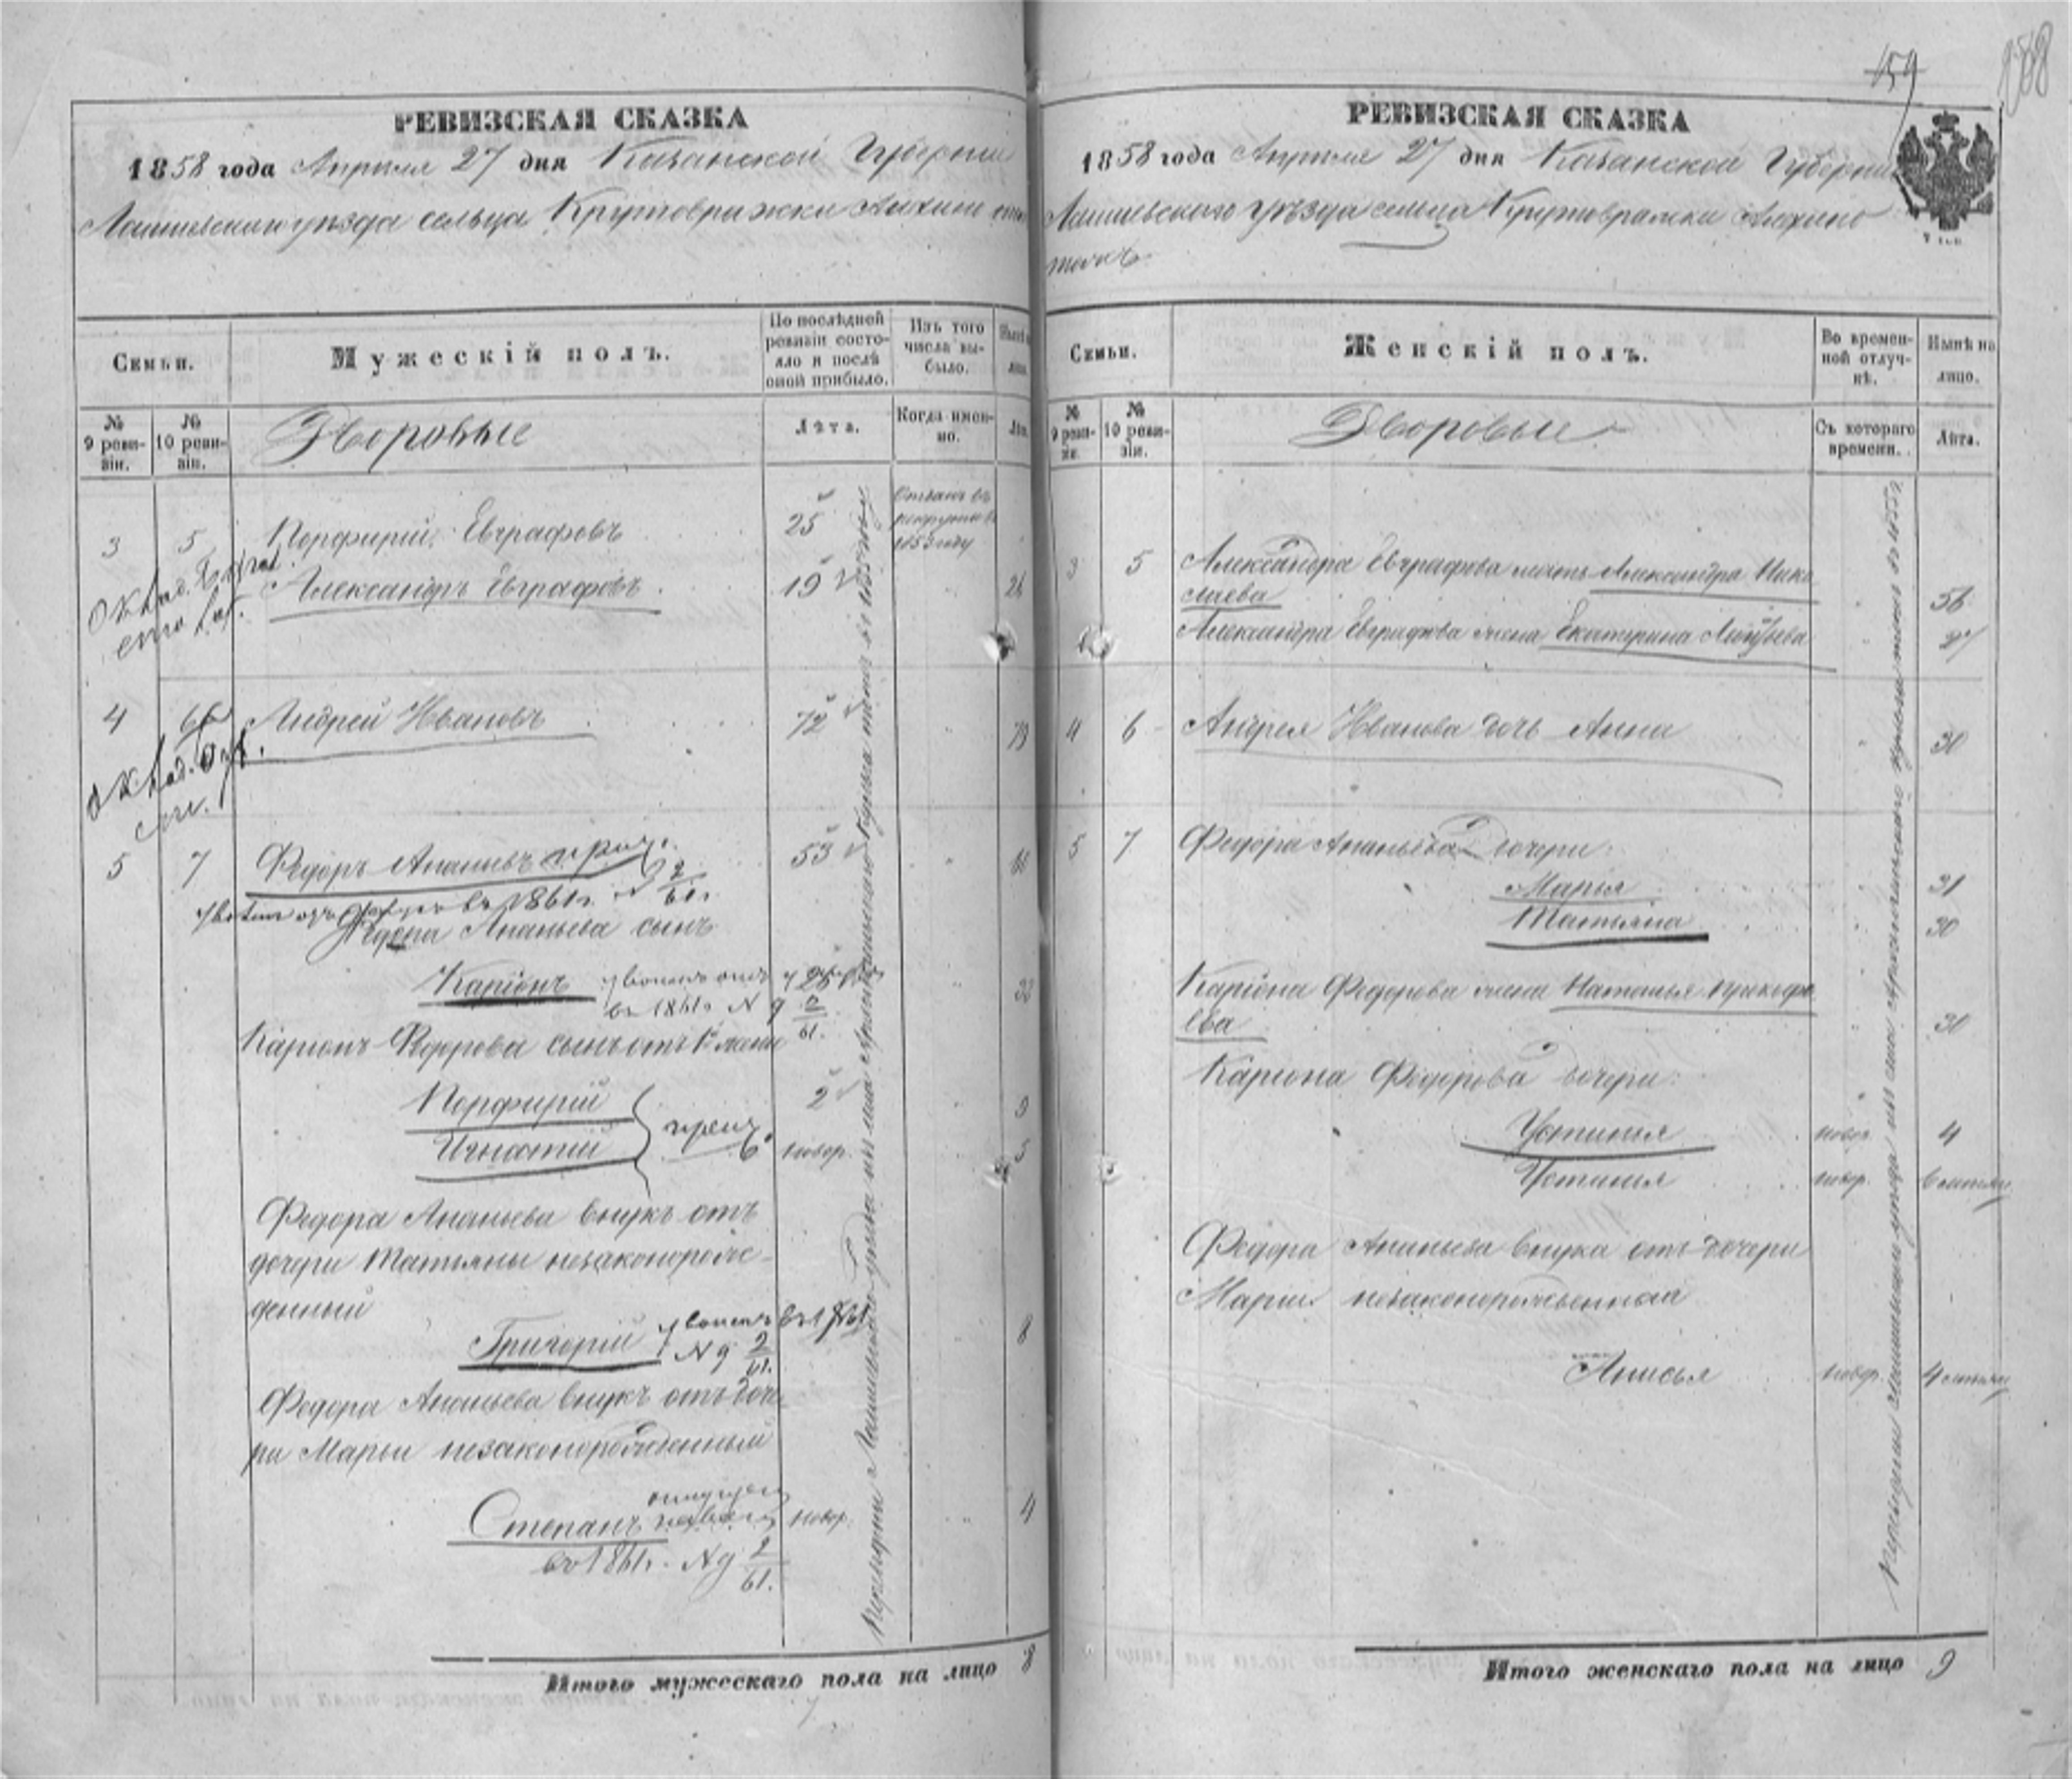 РЕВИЗСКАЯ СКАЗКА
1858 года Апреля 27 дня Казанской Губернии
Лаишевскаго уѣзда сельца
Семьи.
Мужескій полъ.
По послѣдней ревизіи состояло и послѣ оной прибыло.
Изъ того числа выбыло.
№ 9 ревизіи.
№ 10 ревизіи.
Дворовые
Лѣта.
Когда именно.
Лѣт.
3 5 Порфирій Евграфовъ 25
Отданъ въ рекруты въ 1853 году
Александръ Евграфовъ 19 26
4 6 Андрей Ивановъ 72 79
5 7 Федоръ Ананьевъ 53
въ 1861 г. № 2/61.
Федора Ананьева сынъ
Каріонъ 26 33
въ 1861 г. № 9 2/61.
Каріонъ Федорова сынъ отъ 1й жены
Порфирій 2 9
Игнатій новор. 5
Федора Ананьева внукъ отъ
дочери Татьяны незаконорож-
денный
Григорій 8
№ 9 2/61.
Федора Ананьева внукъ отъ доче
ри Марьи незаконорожденный
Степанъ новор. 4
въ 1861 г. № 9 2/61.
Итого мужескаго пола на лицо 8
159
РЕВИЗСКАЯ СКАЗКА
1858 года Апреля 27 дня Казанской Губерніи
Лаишевского уѣзда сельца
тожъ
Семьи.
Женскій полъ.
Во временной отлучкѣ.
Нынѣ на лицо.
№ 9 ревизіи.
№ 10 ревизіи.
Дворовые
Съ котораго времени.
Лѣта.
3 5 Александра Евграфова мать Александра Нико
лаева 56
Александра Евграфова жена Екатерина 27
4 6 Андрея Иванова дочь Анна 30
5 7 Федора Ананьева дочери:
Марья 31
Татьяна 30
Каріона Федорова жена Наталья Прокофь
ева 30
Каріона Федорова дочери:
Устинья новор. 4
Устинья новор. 6 мѣсяц.
Федора Ананьева внука отъ дочери
Марьи незаконорожденная
Анисья новор. 4 мѣсяц.
Итого женскаго пола на лицо 9